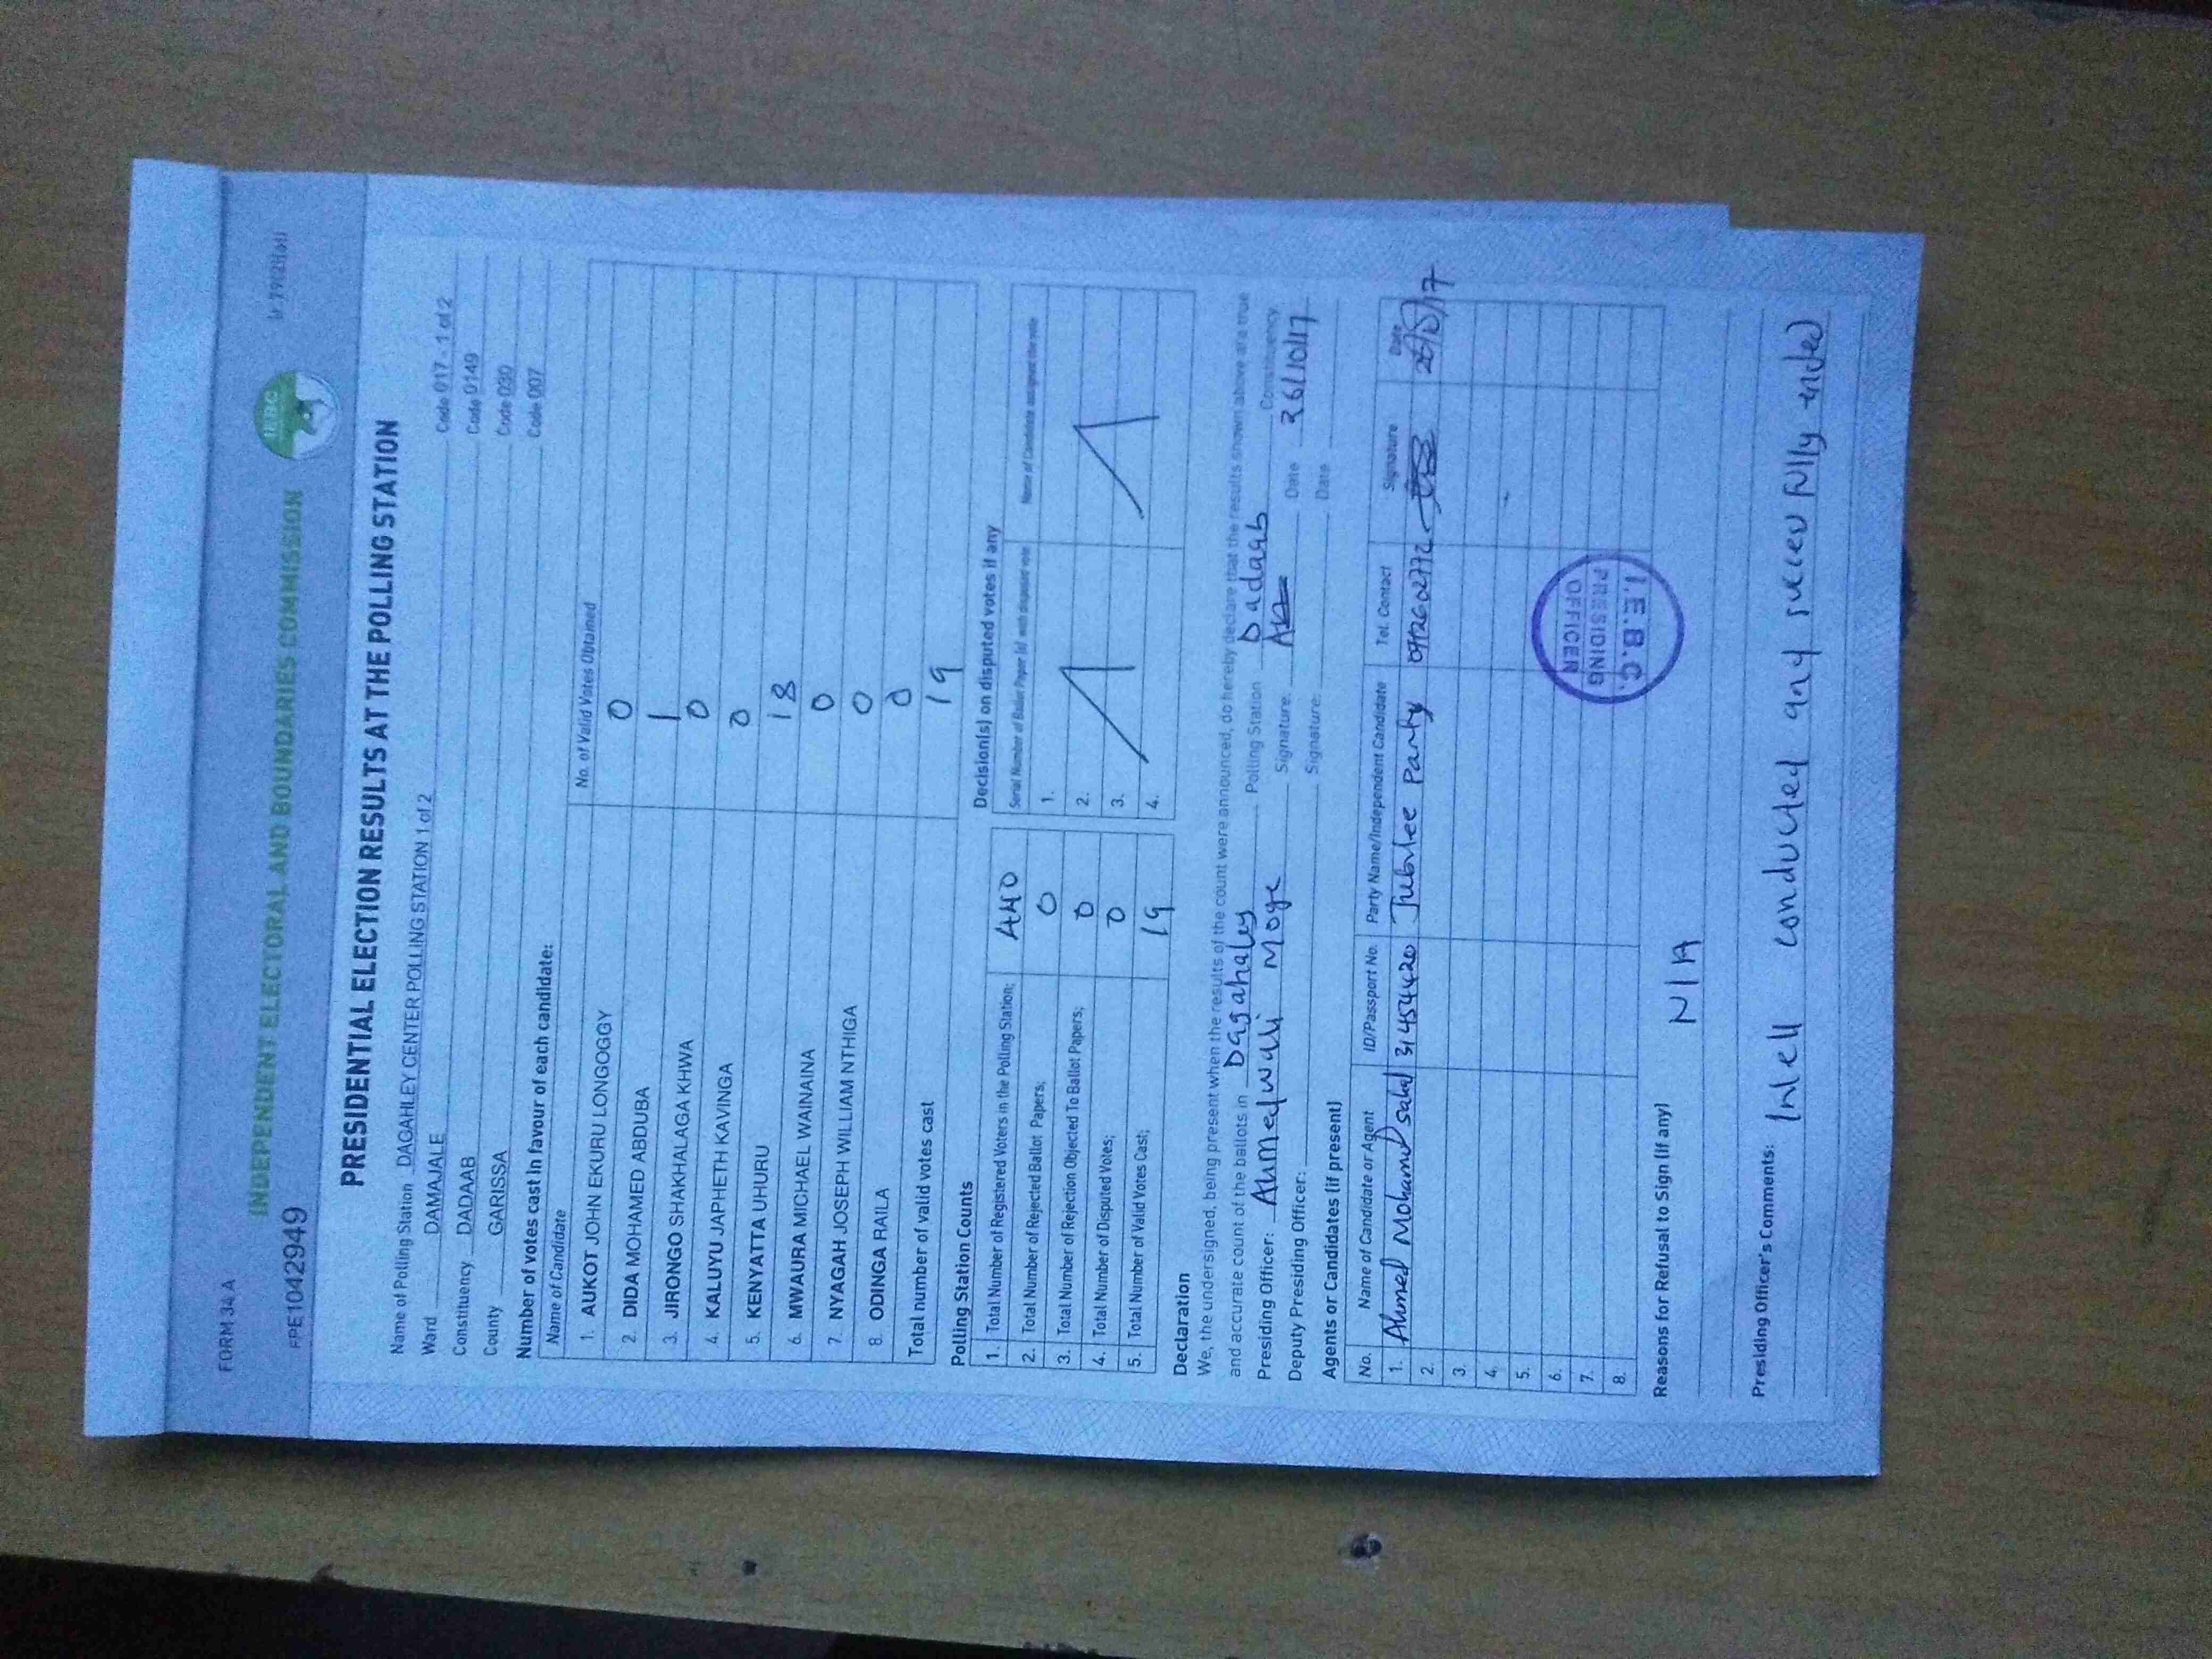 FORM 34 A
INDEPENDENT ELECTORAL AND BOUNDARIES COMMISSION
IEBC
PRESIDENTIAL ELECTION RESULTS AT THE POLLING STATION
Name of Polling Station DAGAHLEY CENTER POLLING STATION 1 of 2 Code 017 - 1 of 2
Ward DAMAJALE Code 0149
Constituency DADAAB Code 030
County GARISSA Code 007
Number of votes cast in favour of each candidate:
Name of Candidate No. of Valid Votes Obtained
1. AUKOT JOHN EKURU LONGOGGY 0
2. DIDA MOHAMED ABDUBA 1
3. JIRONGO SHAKHALAGA KHWA 0
4. KALUYU JAPHETH KAVINGA 0
5. KENYATTA UHURU 18
6. MWAURA MICHAEL WAINAINA 0
7. NYAGAH JOSEPH WILLIAM NTHIGA 0
8. ODINGA RAILA 0
Total number of valid votes cast 19
Polling Station Counts
1. Total Number of Registered Voters in the Polling Station; 440
2. Total Number of Rejected Ballot Papers; 0
3. Total Number of Rejection Objected To Ballot Papers; 0
4. Total Number of Disputed Votes; 0
5. Total Number of Valid Votes Cast; 19
Decision(s) on disputed votes if any
Serial Number of Ballot Paper (s) with disputed vote Name of Candidate assigned the vote
1.
2.
3.
4.
Declaration
We, the undersigned, being present when the results of the count were announced, do hereby declare that the results shown above are a true
and accurate count of the ballots in Dagahaley Polling Station Dadaab Constituency
Presiding Officer: Ahmedwali Moge Signature: Date 26/10/17
Deputy Presiding Officer: Signature: Date
Agents or Candidates (if present)
No. Name of Candidate or Agent ID/Passport No. Party Name/Independent Candidate Tel. Contact Signature Date
1. Ahmed Mohamed 31454420 Jubilee Party
2.
3.
4.
5.
6.
7.
8.
I.E.B.C.
PRESIDING
OFFICER
Reasons for Refusal to Sign (if any)
N/A
Presiding Officer's Comments: Well conducted and